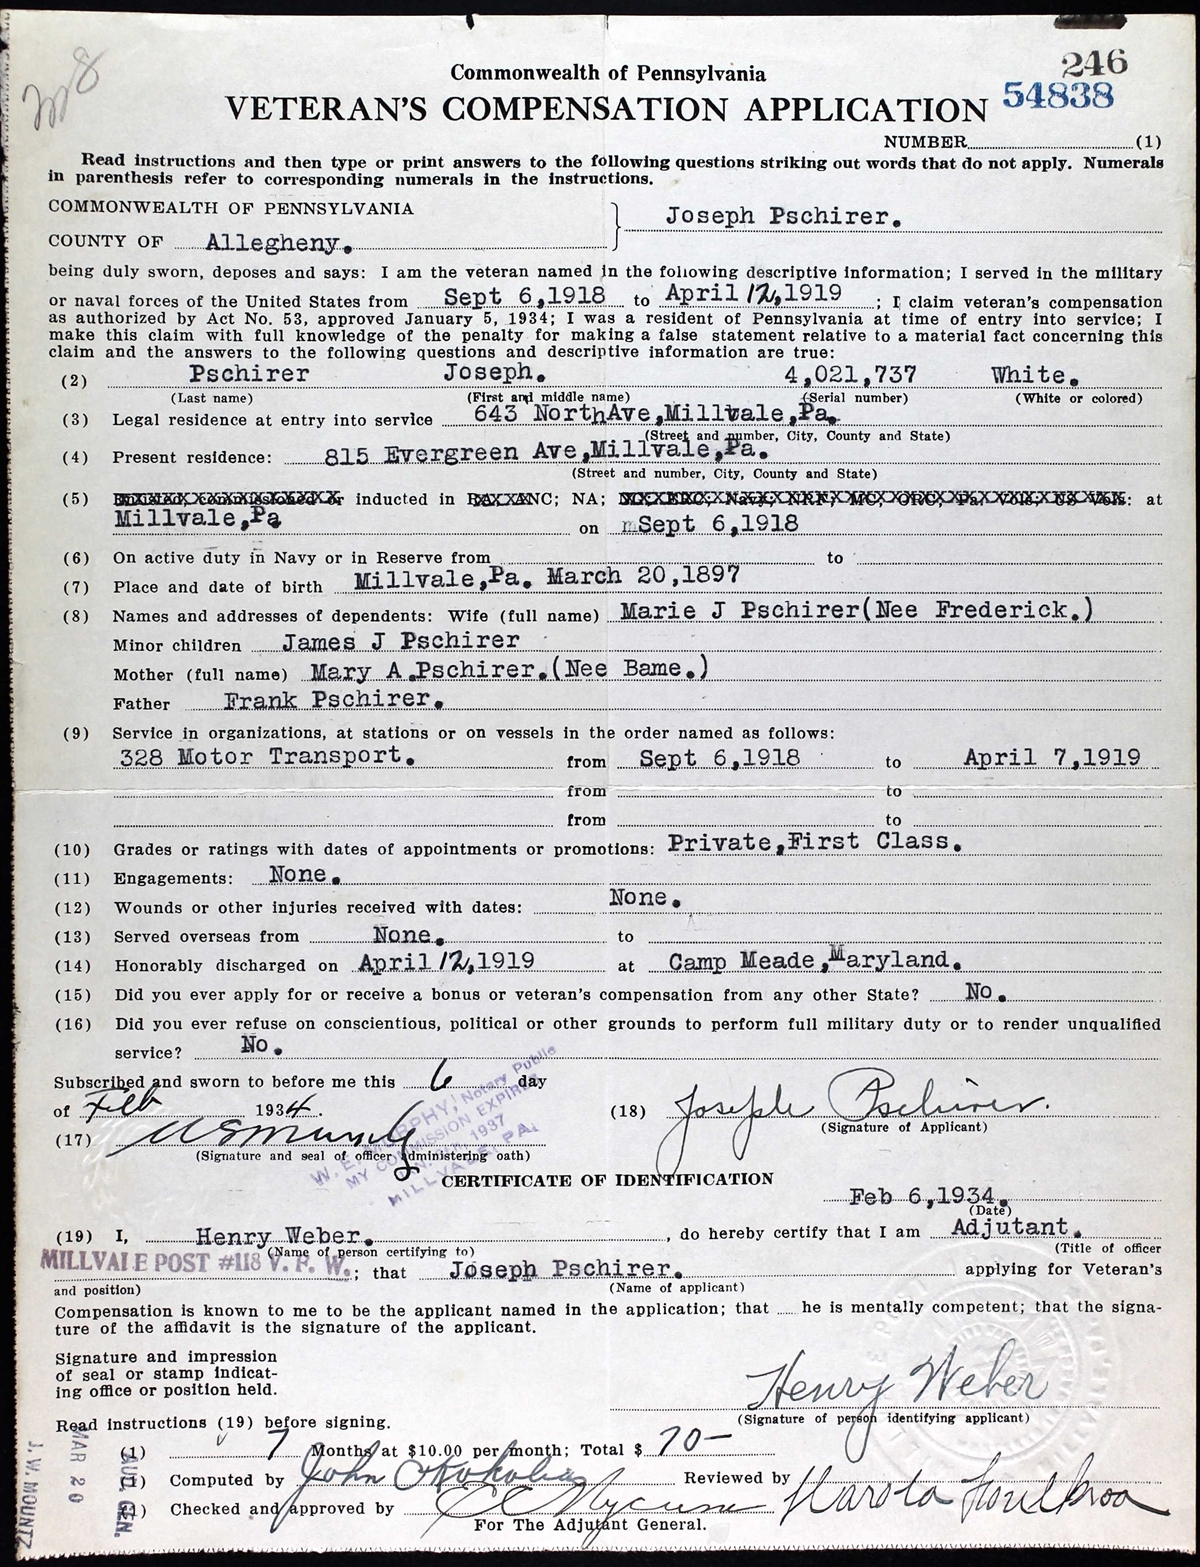 246
Commonwealth of Pennsylvania
VETERAN'S COMPENSATION APPLICATION 54838
NUMBER (1)
Read instructions and then type or print answers to the following questions striking out words that do not apply. Numerals
in parenthesis refer to corresponding numerals in the instructions.
COMMONWEALTH OF PENNSYLVANIA } Joseph Pschirer.
COUNTY OF Allegheny.
being duly sworn, deposes and says: I am the veteran named in the following descriptive information; I served in the military
or naval forces of the United States from Sept 6,1918 to April 12,1919 ; I claim veteran's compensation
as authorized by Act No. 53, approved January 5, 1934; I was a resident of Pennsylvania at time of entry into service; I
make this claim with full knowledge of the penalty for making a false statement relative to a material fact concerning this
claim and the answers to the following questions and descriptive information are true:
(2) Pschirer Joseph. 4,021,737 White.
(Last name) (First and middle name) (Serial number) (White or colored)
(3) Legal residence at entry into service 643 NorthAve,Millvale,Pa.
(Street and number, City, County and State)
(4) Present residence: 815 Evergreen Ave,Millvale,Pa.
(Street and number, City, County and State)
(5) inducted in NC; NA; : at
Millvale,Pa on Sept 6,1918
(6) On active duty in Navy or in Reserve from to
(7) Place and date of birth Millvale,Pa. March 20,1897
(8) Names and addresses of dependents: Wife (full name) Marie J Pschirer(Nee Frederick.)
Minor children James J Pschirer
Mother (full name) Mary A.Pschirer.(Nee Bame.)
Father Frank Pschirer.
(9) Service in organizations, at stations or on vessels in the order named as follows:
328 Motor Transport. from Sept 6,1918 to April 7,1919
from to
from to
(10) Grades or ratings with dates of appointments or promotions: Private,First Class.
(11) Engagements: None.
(12) Wounds or other injuries received with dates: None.
(13) Served overseas from None. to
(14) Honorably discharged on April 12,1919 at Camp Meade,Maryland.
(15) Did you ever apply for or receive a bonus or veteran's compensation from any other State? No.
(16) Did you ever refuse on conscientious, political or other grounds to perform full military duty or to render unqualified
service? No.
Subscribed and sworn to before me this 6 day
of Feb 1934.
(18) Joseph Pschirer.
(Signature of Applicant)
(17)
(Signature and seal of officer administering oath)
W. E. MURPHY, Notary Public
MY COMMISSION EXPIRES
1937
MILLVALE, PA.
CERTIFICATE OF IDENTIFICATION
Feb 6,1934.
(Date)
(19) I, Henry Weber. , do hereby certify that I am Adjutant.
(Name of person certifying to) (Title of officer
MILLVALE POST #118 V. F. W. ; that Joseph Pschirer. applying for Veteran's
and position) (Name of applicant)
Compensation is known to me to be the applicant named in the application; that he is mentally competent; that the signa-
ture of the affidavit is the signature of the applicant.
Signature and impression
of seal or stamp indicat-
ing office or position held.
Henry Weber
(Signature of person identifying applicant)
Read instructions (19) before signing.
(1) 7 Months at $10.00 per month; Total $ 70-
(1) Computed by John Reviewed by
(1) Checked and approved by
For The Adjutant General.
MAR 20
J. W. MOUNTZ